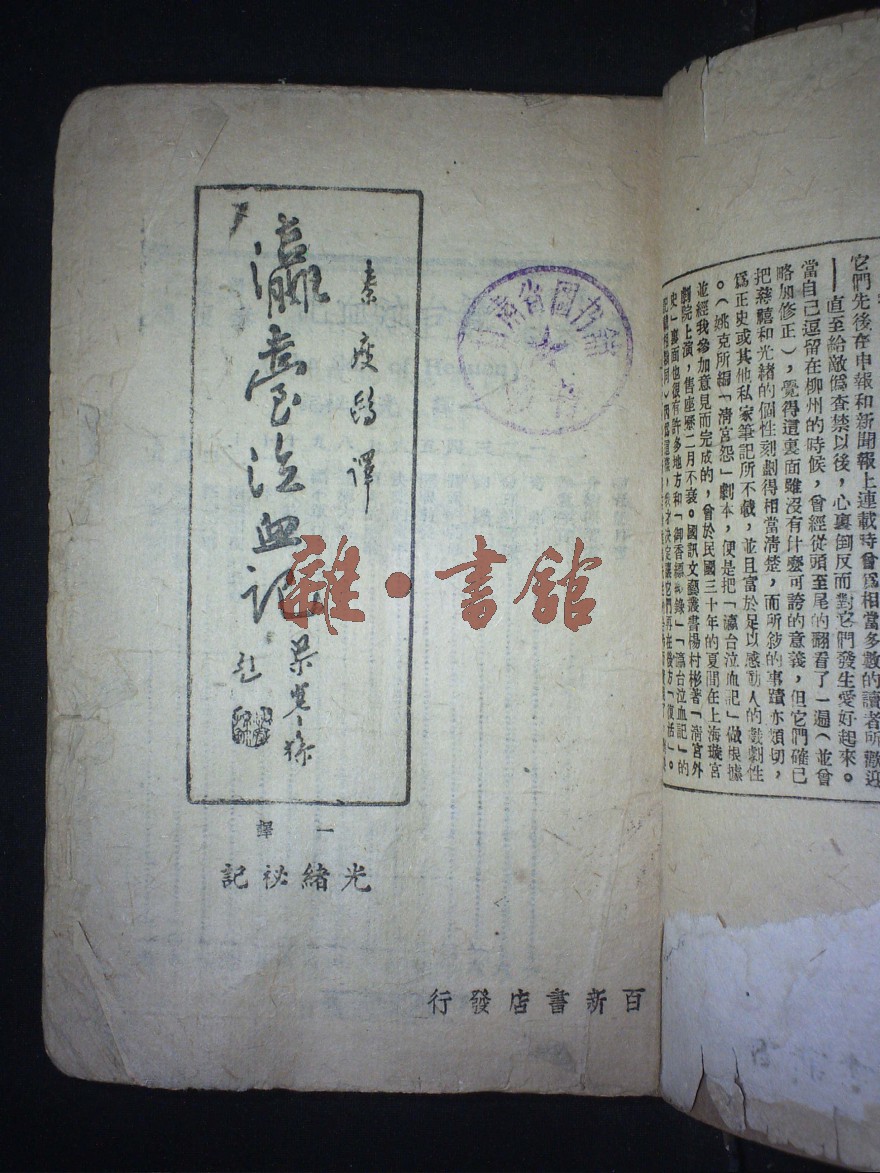 它們先後在申報和新聞報上連載時曾爲相當多數的讀者所歡迎
——直至給敵僞查禁以後，心裏倒反而對它們發生愛好起來。
當自己逗留在柳州的時候，曾經從頭至尾的翻看了一遍（並曾
略加修正），覺得這裏面雖沒有什麼可誇的意義，但它們確已
把慈禧和光緒的個性刻劃得相當淸楚，而所敘的事蹟亦頗切，
爲正史或其他私家筆記所不載，並且富於足以感動人的戲劇性
。（姚克所編「淸宮怨」劇本，便是把「瀛台泣血記」做根據
並經我參加意見而完成的，曾於民國三十年的夏間在上海璇宮
劇院上演，售座歷二月不衰。國訊文藝叢書楊村彬著「淸宮外
史」裏面也很有許多地方和「御香縹緲錄」「瀛台泣血記」的
秦瘦鷗譯
瀛臺泣血記
題
一譯
光緒祕記
百新書店發行
省图书館
雜·書館